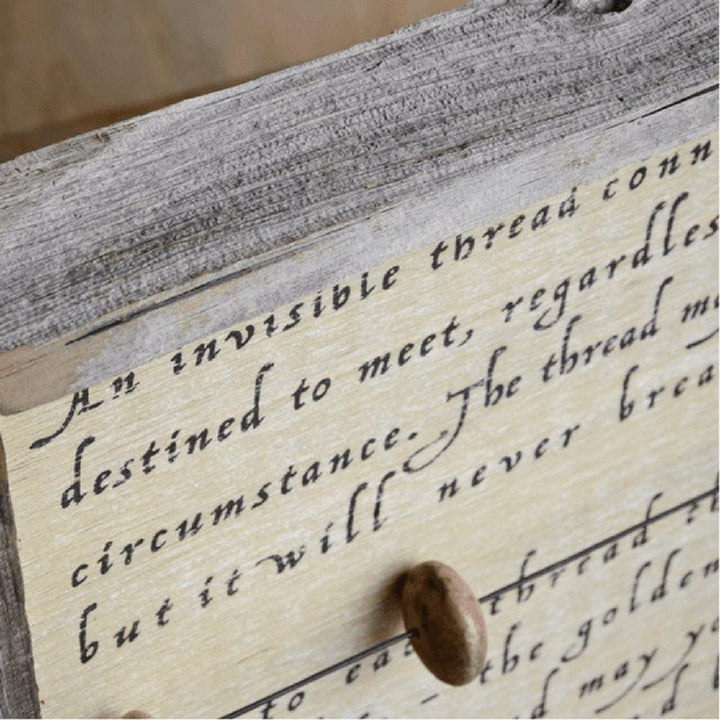 An invisible thread conn
destined to meet, regardles
circumstance. The thread m
but it will never brea
thread
to ea
- the golden
may y